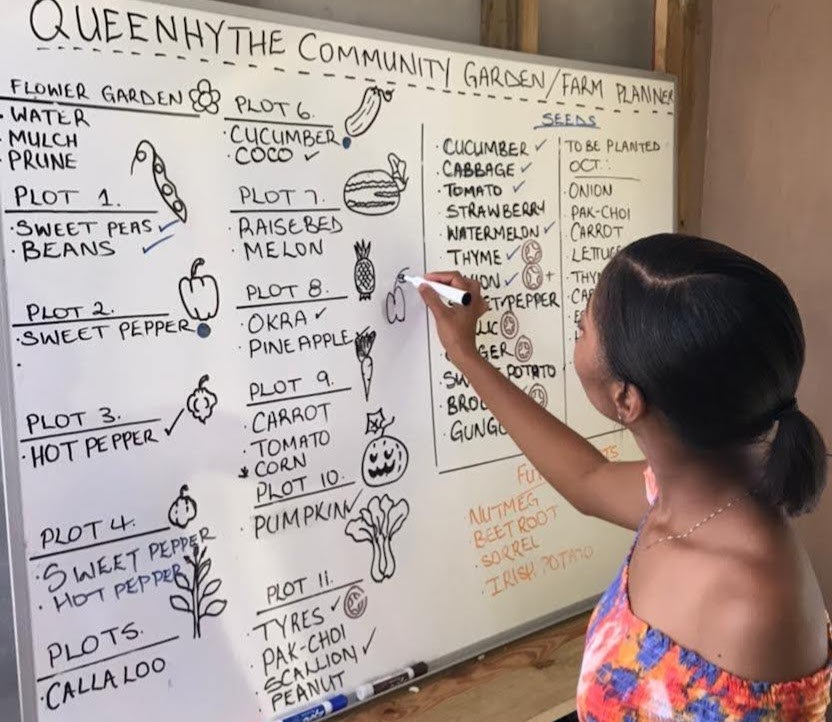 QUEENHYTHE COMMUNITY GARDEN/FARM PLANNER
FLOWER GARDEN
· WATER
· MULCH
· PRUNE
PLOT 1.
· SWEET PEAS ✓
· BEANS ✓
PLOT 2.
· SWEET PEPPER
·
PLOT 3.
· HOT PEPPER ✓
PLOT 4.
· SWEET PEPPER
· HOT PEPPER
PLOT5.
· CALLALOO
PLOT 6.
· CUCUMBER
· COCO ✓
PLOT 7.
· RAISEBED
· MELON
PLOT 8.
· OKRA ✓
· PINEAPPLE
PLOT 9.
· CARROT
· TOMATO
* CORN
PLOT 10.
· PUMPKIN ✓
PLOT 11.
· TYRES ✓
· PAK-CHOI
· SCALLION ✓
· PEANUT
SEEDS
· CUCUMBER ✓
· CABBAGE ✓
· TOMATO ✓
· STRAWBERRY
· WATERMELON ✓
· THYME ✓
PEPPER
POTATO
TO BE PLANTED
OCT.:
· ONION
· PAK-CHOI
· CARROT
· NUTMEG
· BEETROOT
· SORREL
· IRISH POTATO